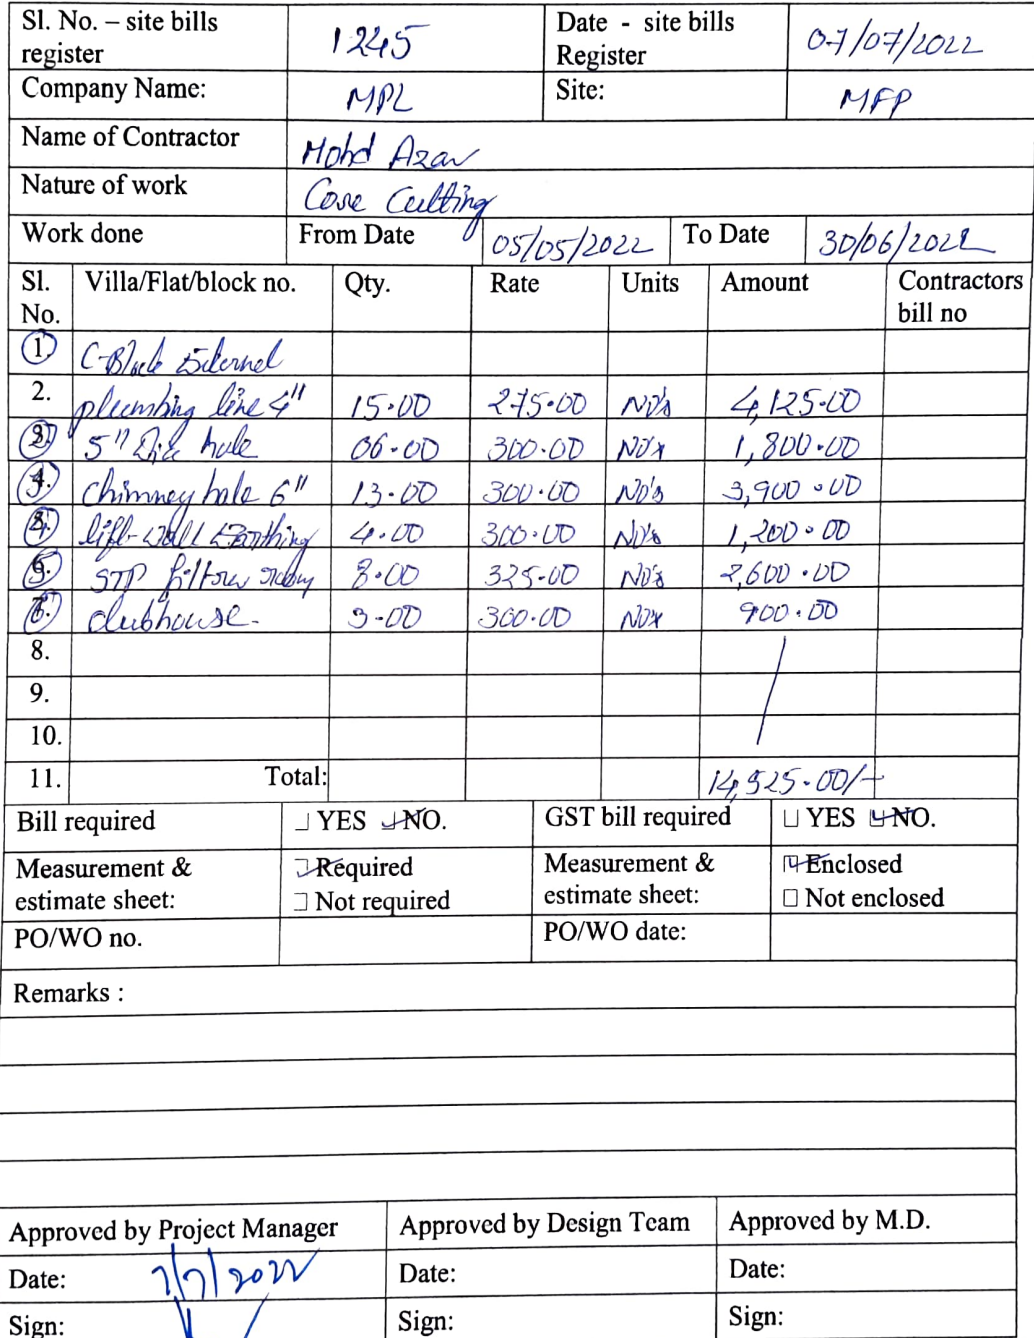 Sl. No. – site bills register 1245 Date - site bills Register 07/07/2022
Company Name: MPL Site: MFP
Name of Contractor Mohd Azar
Nature of work Core Cutting
Work done From Date 05/05/2022 To Date 30/06/2022
Sl. No. Villa/Flat/block no. Qty. Rate Units Amount Contractors bill no
1. C-Block External
2. plumbing line 4" 15.00 275.00 No's 4,125.00
5" Dia hole 06.00 300.00 No's 1,800.00
chimney hole 6" 13.00 300.00 No's 3,900.00
lift-wall Earthing 4.00 300.00 No's 1,200.00
STP 8.00 325.00 No's 2,600.00
clubhouse. 3.00 300.00 No's 900.00
8.
9.
10.
11. Total: 14,525.00/-
Bill required YES NO. GST bill required YES NO.
Measurement & estimate sheet: Required Not required Measurement & estimate sheet: Enclosed Not enclosed
PO/WO no. PO/WO date:
Remarks :
Approved by Project Manager Approved by Design Team Approved by M.D.
Date: 7/7/2022 Date: Date:
Sign: Sign: Sign: